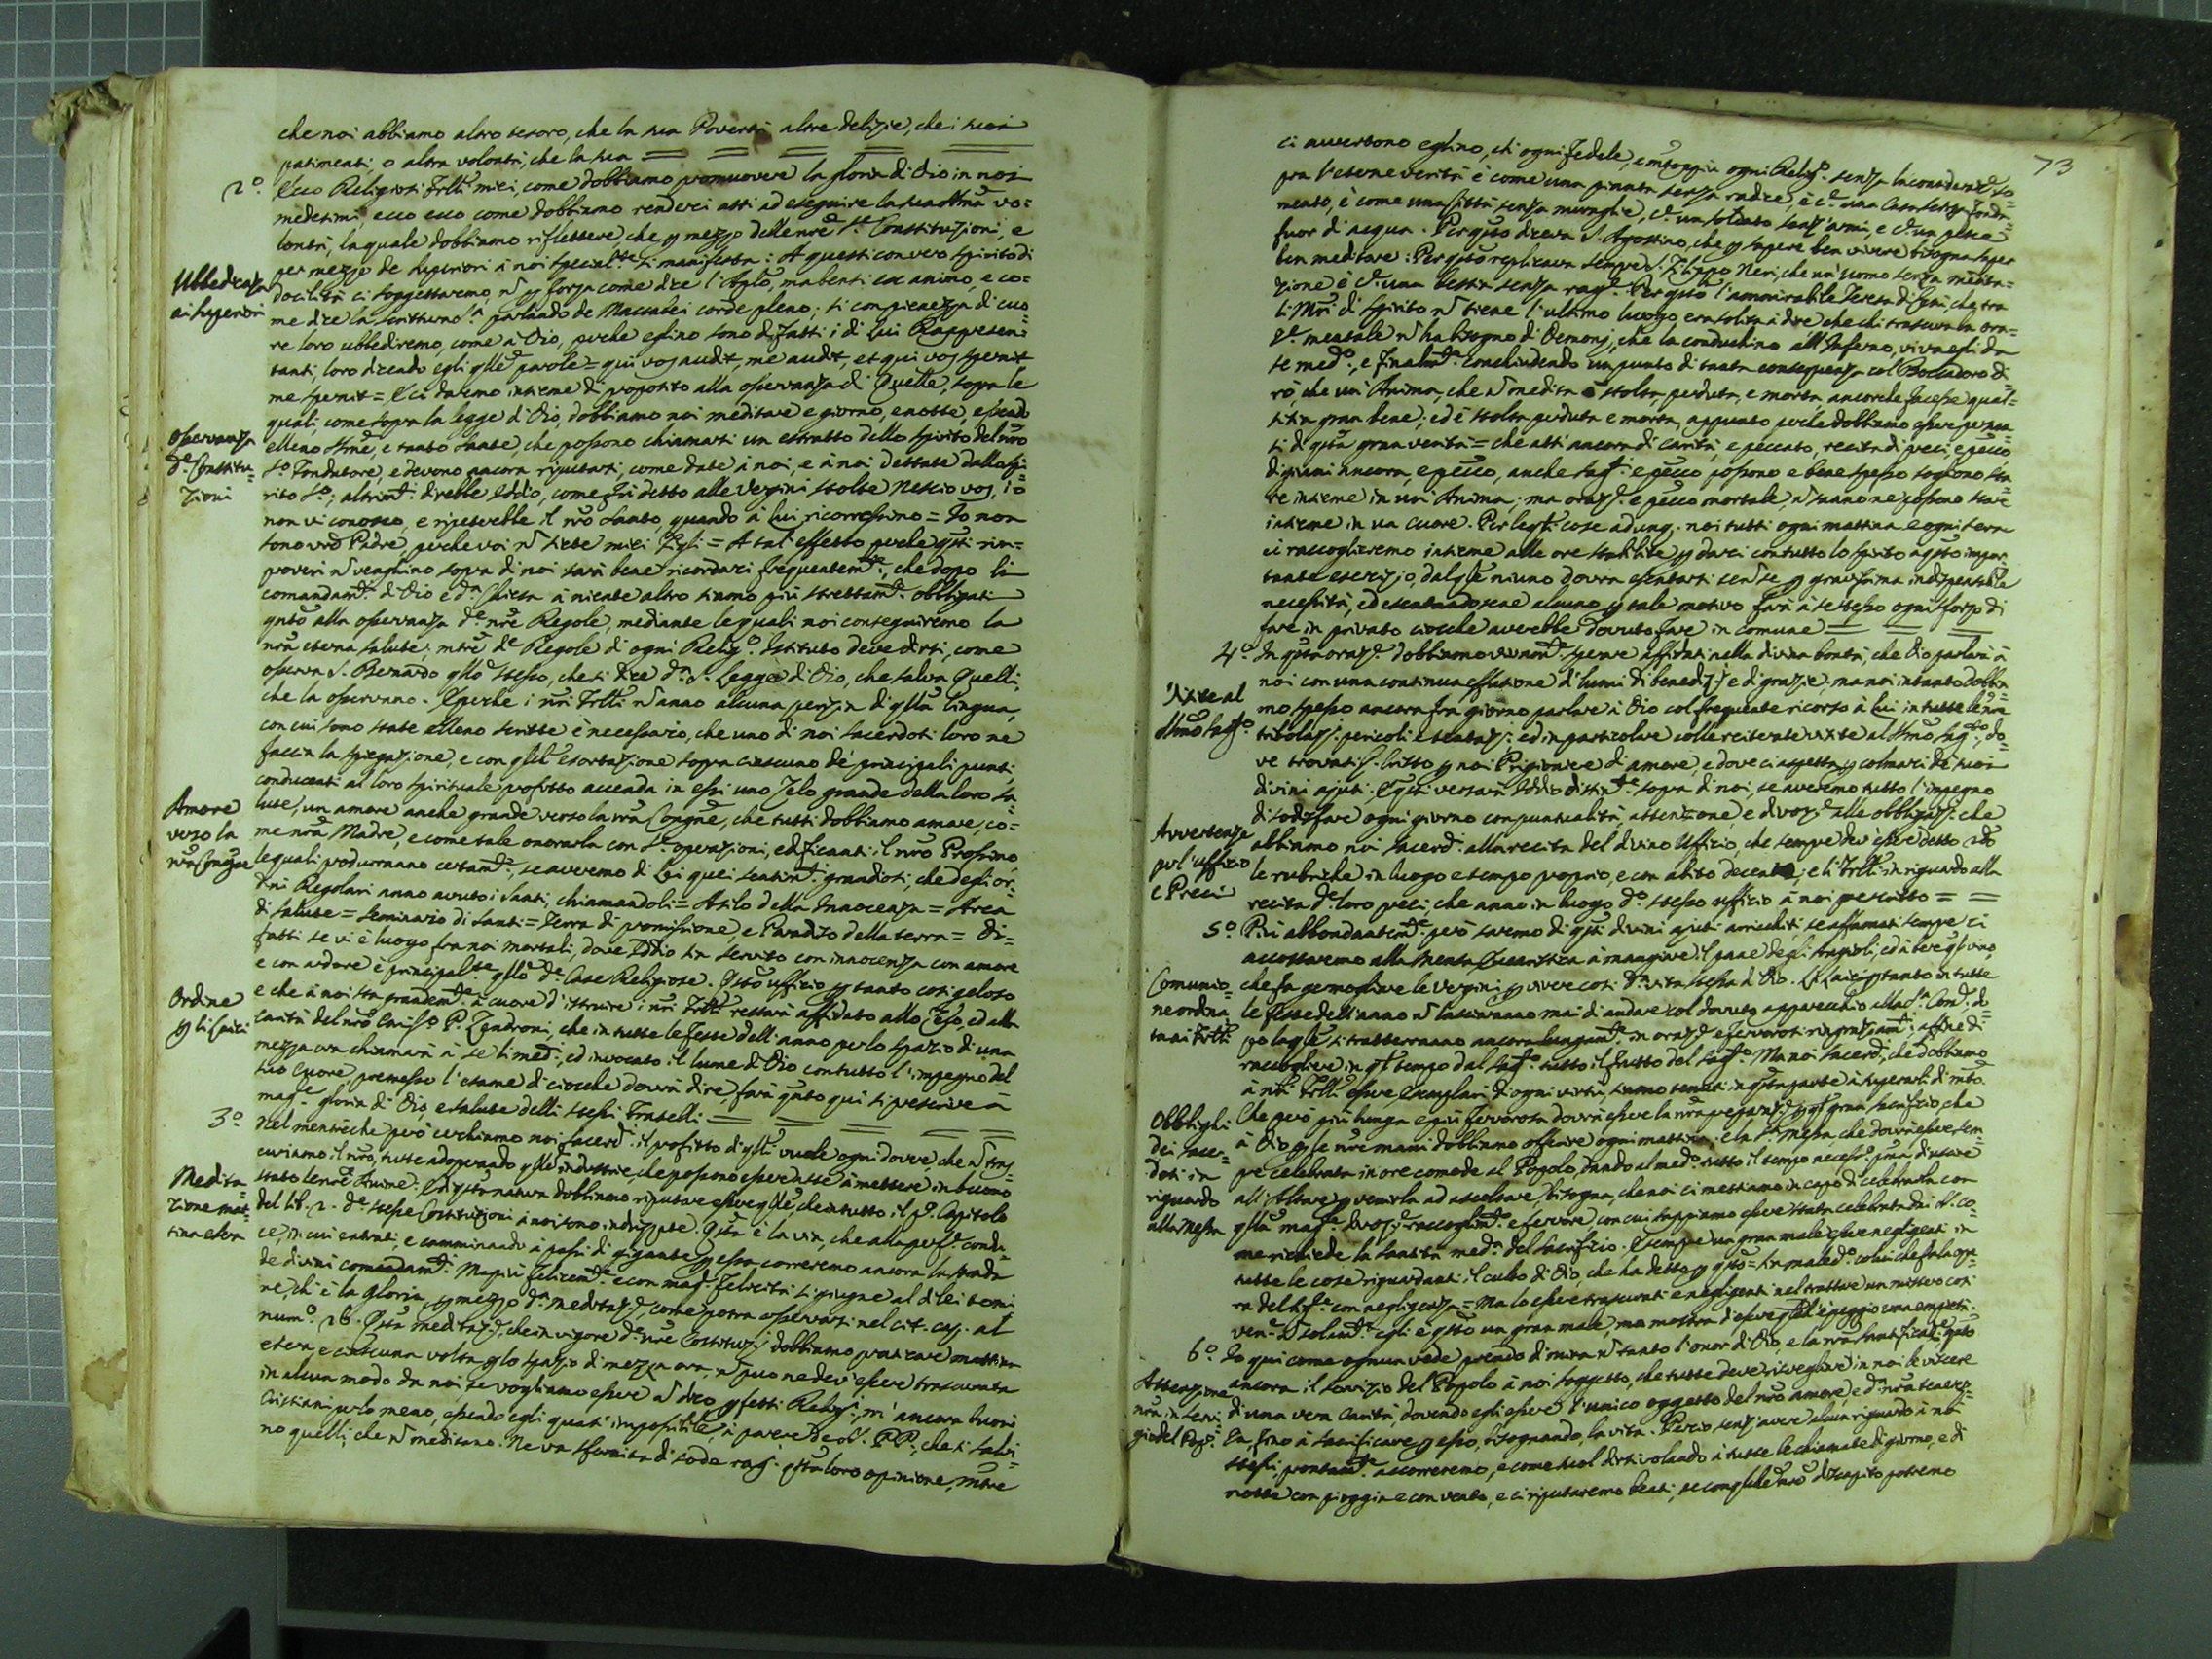 che noi abbiamo altro tesoro, che la sua Povertà altre delizie, che i suoi
patimenti, o altra volontà, che la sua
2º. Ecco Religiosi Frlli miei, come dobbiamo promuovere la gloria di Dio in noi
medesimi, ecco ecco come dobbiamo renderci atti ad eseguire la sua vo=
lontà, la quale dobbiamo riflettere, che p mezzo delle nre Ste Constituzioni, e
per mezzo de Superiori à noi si manifesta: A questi con vero spirito di
Ubbedienza
ai Superiori
docilità ci soggettaremo, n p forza come dice l'Aplo, ma benti ex animo, e co=
me dice la scrittura Sa parlando de Maccabei corde pleno; si con pienezza di cuo
re loro ubbediremo, come à Dio, perche eglino sono di fatti i di Lui Rappresen
tanti, loro dicendo egli qlle parole = qui vos audit, me audit, et qui vos spernit
me spernit = E ci daremo insieme di proposito alla osservanza di Quelle, sopra le
quali, come sopra la legge di Dio, dobbiamo noi meditare e giorno, e notte, essendo
Osservanza
de Constitu=
zioni
elleno Sme, e tanto sante, che possono chiamarsi un estratto dello Spirito del nro
So Fondatore, e devono ancora riputarsi, come date à noi, e à noi dettate dallo Spi
rito So; altrimti direbbe Iddio, come fù detto alle Vergini stolte Nescio vos, io
non vi conosco, e ripeterebbe il nro Santo, quando à Lui ricorressimo = Io non
sono vro Padre, perche voi n siete miei Figli = A tal effetto perche qsti rim=
proveri n venghino sopra di noi sarà bene ricordarci frequentemte, che dopo li
comandamti di Dio e da Chiesa à niente altro siamo più strettamte obbligati
qnto alla osservanza de nre Regole, mediante le quali noi conseguiremo la
nra eterna salute; mtre de Regole di ogni Religo Istituto deve dirsi, come
osserva S. Bernardo qllo stesso, che si dice da S. Legge di Dio, che salva Quelli,
che la osservano. E perche i nri Frlli n anno alcuna perizia di qlla lingua,
con cui sono state elleno scritte è necessario, che uno di noi Sacerdoti loro ne
faccia la spiegazione, e con qlche esortazione sopra ciascuno dè principali punti,
conducenti al loro spirituale profitto accenda in essi uno Zelo grande della loro sa
Amore
verso la
nra Congne
lute, un amore anche grande verso la nra Congne, che tutti dobbiamo amare, co=
me nra Madre, e come tale onorarla con Se operazioni, edificanti il nro Prossimo
le quali produrranno certamte, se avremo di Lei quei sentimti grandiosi, che degli or
dini Regolari anno avuto i Santi, chiamandoli = Asilo della Innocenza = Arca
di salute = Seminario di Santi = Terra di promissione, e Paradiso della terra = Di=
fatti se vi è luogo fra noi mortali, dove Iddio sia servito con innocenza con amore
e con ardore è principalte qllo de Case Religiose. Qsto uffizio p tanto così geloso
Ordine
p li laici
e che à noi sta grandemte à cuore d'istruire i nri Frlli restarà affidato allo Zelo, ed alla
carità del nro Carisso P. Zendroni, che in tutte le feste dell'anno per lo spazio di una
mezza ora chiamarà à se li medi, ed invocato il lume di Dio con tutto l'impegno del
suo Cuore, premesso l'esame di ciocche dovrà dire, farà qnto qui si prescrive à
mage gloria di Dio, e salute delli stessi Fratelli
3º. Nel mentreche però cerchiamo noi Sacerdi il profitto di qlli vuole ogni dovere, che n tras=
curiamo il nro, tutte adoperando qlle industrie, che possono essere atte à mettere in buono
Medita
zione mat
tina e sera
stato le nre Anime: Di qsta natura dobbiamo riputare esser qlle, che in tutto il po Capitolo
del lib. 2. de stesse Costituzioni à noi sono indirizzate. Qsta è la via, che alla perfe condu=
ce, in cui entrati, e camminando à passi di gigante p essa correremo ancora la strada
de divini comandamti. Ma più felicemte e con mage felicità si giugne al di lei termi
ne, ch'è la gloria, p mezzo da meditaze, come potrà osservarsi nel cit. cap. al
numo 26. Qsta meditaze, che in vigore de nre Costituzi dobbiamo praticare mattina
e sera, e ciascuna volta p lo spazio di mezza ora, n può ne dev'essere trascurata
in alcun modo da noi, se vogliamo essere n dico pfetti Religi, m'ancora buoni
Cristiani per lo meno, essendo egli quasi impossibile, à parere de SS. PP., che si salvi=
no quelli, che n meditano. Ne va sfornita di sode ragi qsta loro opinione, mtre
73
ci avvertono eglino, che ogni Fedele, e mtoppiù ogni Religo senza la considerane so
pra l'eterne verità è come una pianta senza radice, è ce una Casa senza fonda=
mento, è come una Città senza muraglie, ce un soldato senz'armi, e ce un pesce
fuor di acqua. Per qsto diceva S. Agostino, che p sapere ben vivere bisogna saper
ben meditare: Per qsto replicava sempre S. Filippo Neri, che un'uomo senza medita=
zione è ce una bestia senza rage. Per qsto l'ammirabile Teresa di Gesù, che tra
li Mri di Spirito n tiene l'ultimo luogo era solita à dire che chi trascura la ora=
ze mentale n ha bisogno di Demonj, che la conduchino all'Inferno, vi va egli da
se medo, e finalmte conchiudendo un punto di tanta consequenza col Boccadoro di=
rò, che un'Anima, che n medita è stolta, perduta, e morta, ancorche facesse qual=
sisia gran bene; ed è stolta, perduta e morta, appunto perche dobbiamo essere persua=
si di qsta gran verità = che atti ancora di carità, e peccato, recita di preci, e pecco
digiuni ancora, e pecco, anche Sagti e pecco possono e bene spesso sogliono sta=
re insieme in un'Anima; ma oraze e pecco mortale, n stanno ne possono stare
insieme in un cuore. Per le qli cose adunq; noi tutti ogni mattina e ogni sera
ci raccoglieremo insieme alle ore stabilite p darci con tutto lo Spirito à qsto impor
tante esercizio, dal qle niuno dovrà esentarsi se n se p gravissima indispensabile
necessità, ed esentandosene alcuno p tale motivo farà à se stesso ogni sforzo di
fare in privato ciocche averebbe dovuto fare in comune
4º. In qsta oraze dobbiamo vivamte sperare affidati nella divina bontà, che Dio parlarà à
noi con una continua effusione di lumi di benedizi e di grazie, ma noi intanto dobbia
Visite al
Smo Sagto
mo spesso ancora fra giorno parlare à Dio col frequente ricorso à Lui in tutte le nre
tribolazi pericoli e tentazi; ed in particolare colle reiterate visite al Smo Sagto, do=
ve trovasi G. Cristo p noi Prigioniere di amore, e dove ci aspetta p colmarci de suoi
divini ajuti. E qsti versarà Iddio distinte sopra di noi, se averemo tutto l'impegno
di sodisfare ogni giorno con puntualità, attenzione, e divoze alle obbligazi che
Avvertenze
per l'uffizio
e Preci
abbiamo noi Sacerdi alla recita del divino Uffizio, che sempre dev'essere detto 2do
le rubriche in luogo e tempo proprio, e con abito decente; e li Frlli in riguardo alla
recita de loro preci, che anno in luogo do stesso uffizio à noi prescritto
5º. Più abbondantemte però saremo di qsti divini ajuti arricchiti, se affamati sempre ci
accostaremo alla Mensa Eucaristica à mangiare il pane degli Angioli, ed à bere ql vino,
Comunio=
ne ordina
ta ai Frlli
che fa germogliare le Vergini p vivere così da vita stessa di Dio. Li Laici p tanto in tutte
le feste dell'anno n lasciaranno mai di andare col dovuto apparecchio alla Sa Come do
po la qle si tratterranno ancora lungamte in oraze e fervorosi ringraziamti affine di
raccogliere in ql tempo dal Sagto tutto il frutto del Sagto. Ma noi Sacerdi, che dobbiamo
à nri Frlli essere Esemplari di ogni virtù, siamo tenuti in qsta parte à superarli di mto.
Obblighi
dei Sacer=
doti in
riguardo
alla Messa
Che però più lunga e più fervorosa dovrà essere la nra prepare p ql gran Sacrifizio, che
à Dio p le nre mani dobbiamo offerire ogni mattina; e la Sa Messa che dovrà essere sem
pre celebrata in ore comode al Popolo, dando al medo tutto il tempo necesso pria di uscire
all'Altare p venirla ad ascoltare, bisogna, che noi ci mettiamo in capo di celebrarla con
qlla mage divoze, raccoglimto e fervore, con cui sappiamo essere stata celebrata dai SS. co=
me richiede la santità meda del Sacrifizio. È sempre un gran male essere negligenti in
tutte le cose riguardanti il culto di Dio, che ha detto p qsto = Sia maledo colui che fa la ope
ra del Sige con negligenza = Ma lo essere trascurati e negligenti nel trattare un mistero così
vene n solamte egli è qsto un gran male, ma mostra d'essere qlche peggio una empietà.
6º. Io qui come ognun vede prendo di mira n tanto l'onor di Dio, e la nra santificaze, qnto
ancora il servizio del Popolo à noi soggetto, che tutte deve risvegliare in noi le viscere
Attenzione
nra in servi
gio del Popo
di una vera Carità, dovendo egli essere l'unico oggetto del nro amore, e da nra tenerez=
za, fino à sacrificare p esso, bisognando, la vita. Percio senz'avere alcun riguardo à noi
stessi prontamte accorreremo, e come suol dirsi volando à tutte le chiamate di giorno, e di
notte con pioggia e con vento, e ci riputaremo beati, se con qlche nro discapito potremo